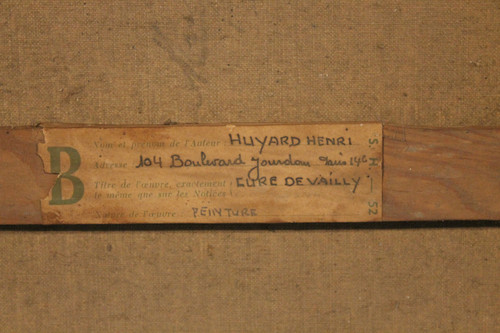 B
Nom et prénom de l'Auteur HUYARD HENRI
Adresse 104 Boulevard Jourdan Paris 14e
Titre de l'œuvre, exactement
le même que sur les Notices CURE DE VAILLY
Nature de l'œuvre PEINTURE
52